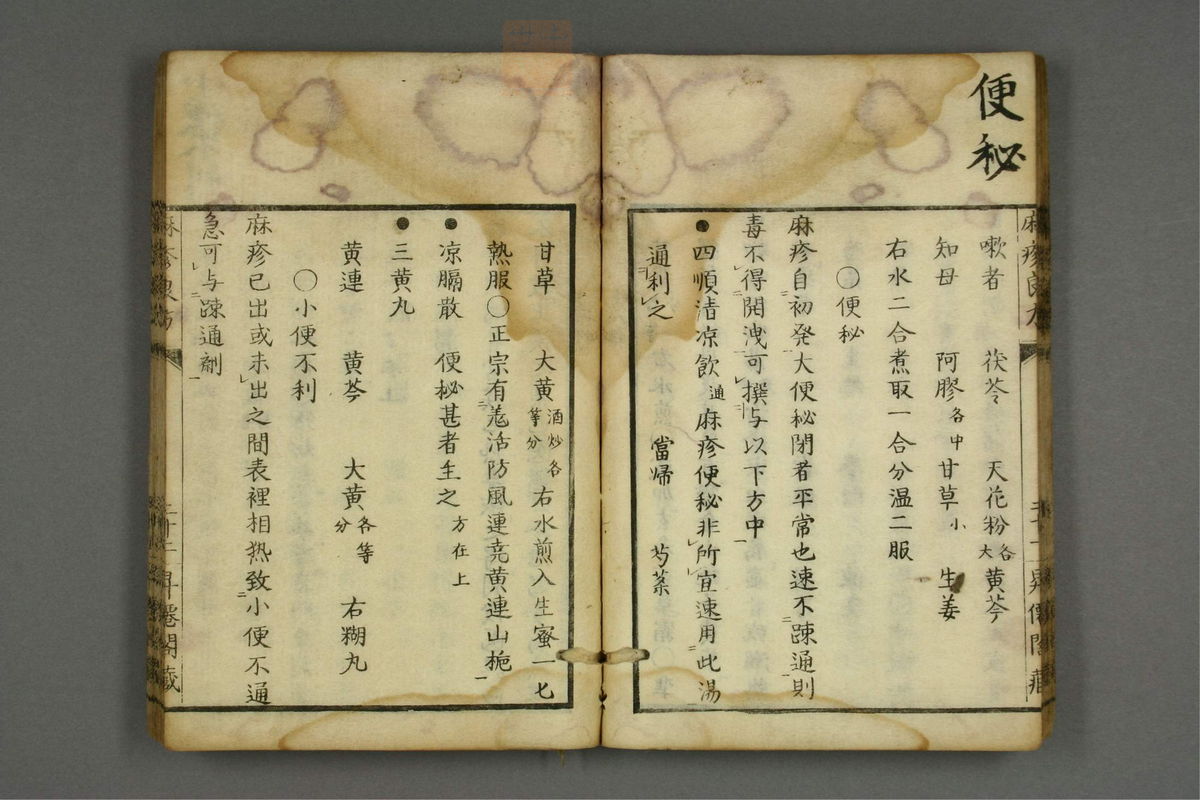 便秘
嗽者 茯苓 天花粉各大 黄芩
知母 阿膠各中 甘草小 生姜
右水二合煮取一合分温二服
〇便秘
麻疹自初発大便秘閉者平常也速不踈通則
毒不得開洩可撰与以下方中
●四順清凉飲通 麻疹便秘非所宜速用此湯
通利之 當帰 芍薬
甘草 大黄酒炒各等分 右水煎入生蜜一匕
熱服〇正宗有羗活防風連尭黄連山梔
●凉膈散 便秘甚者主之方在上
●三黄丸
黄連 黄芩 大黄各等分 右糊丸
〇小便不利
麻疹已出或未出之間表裡相热致小便不通
急可与踈通劑